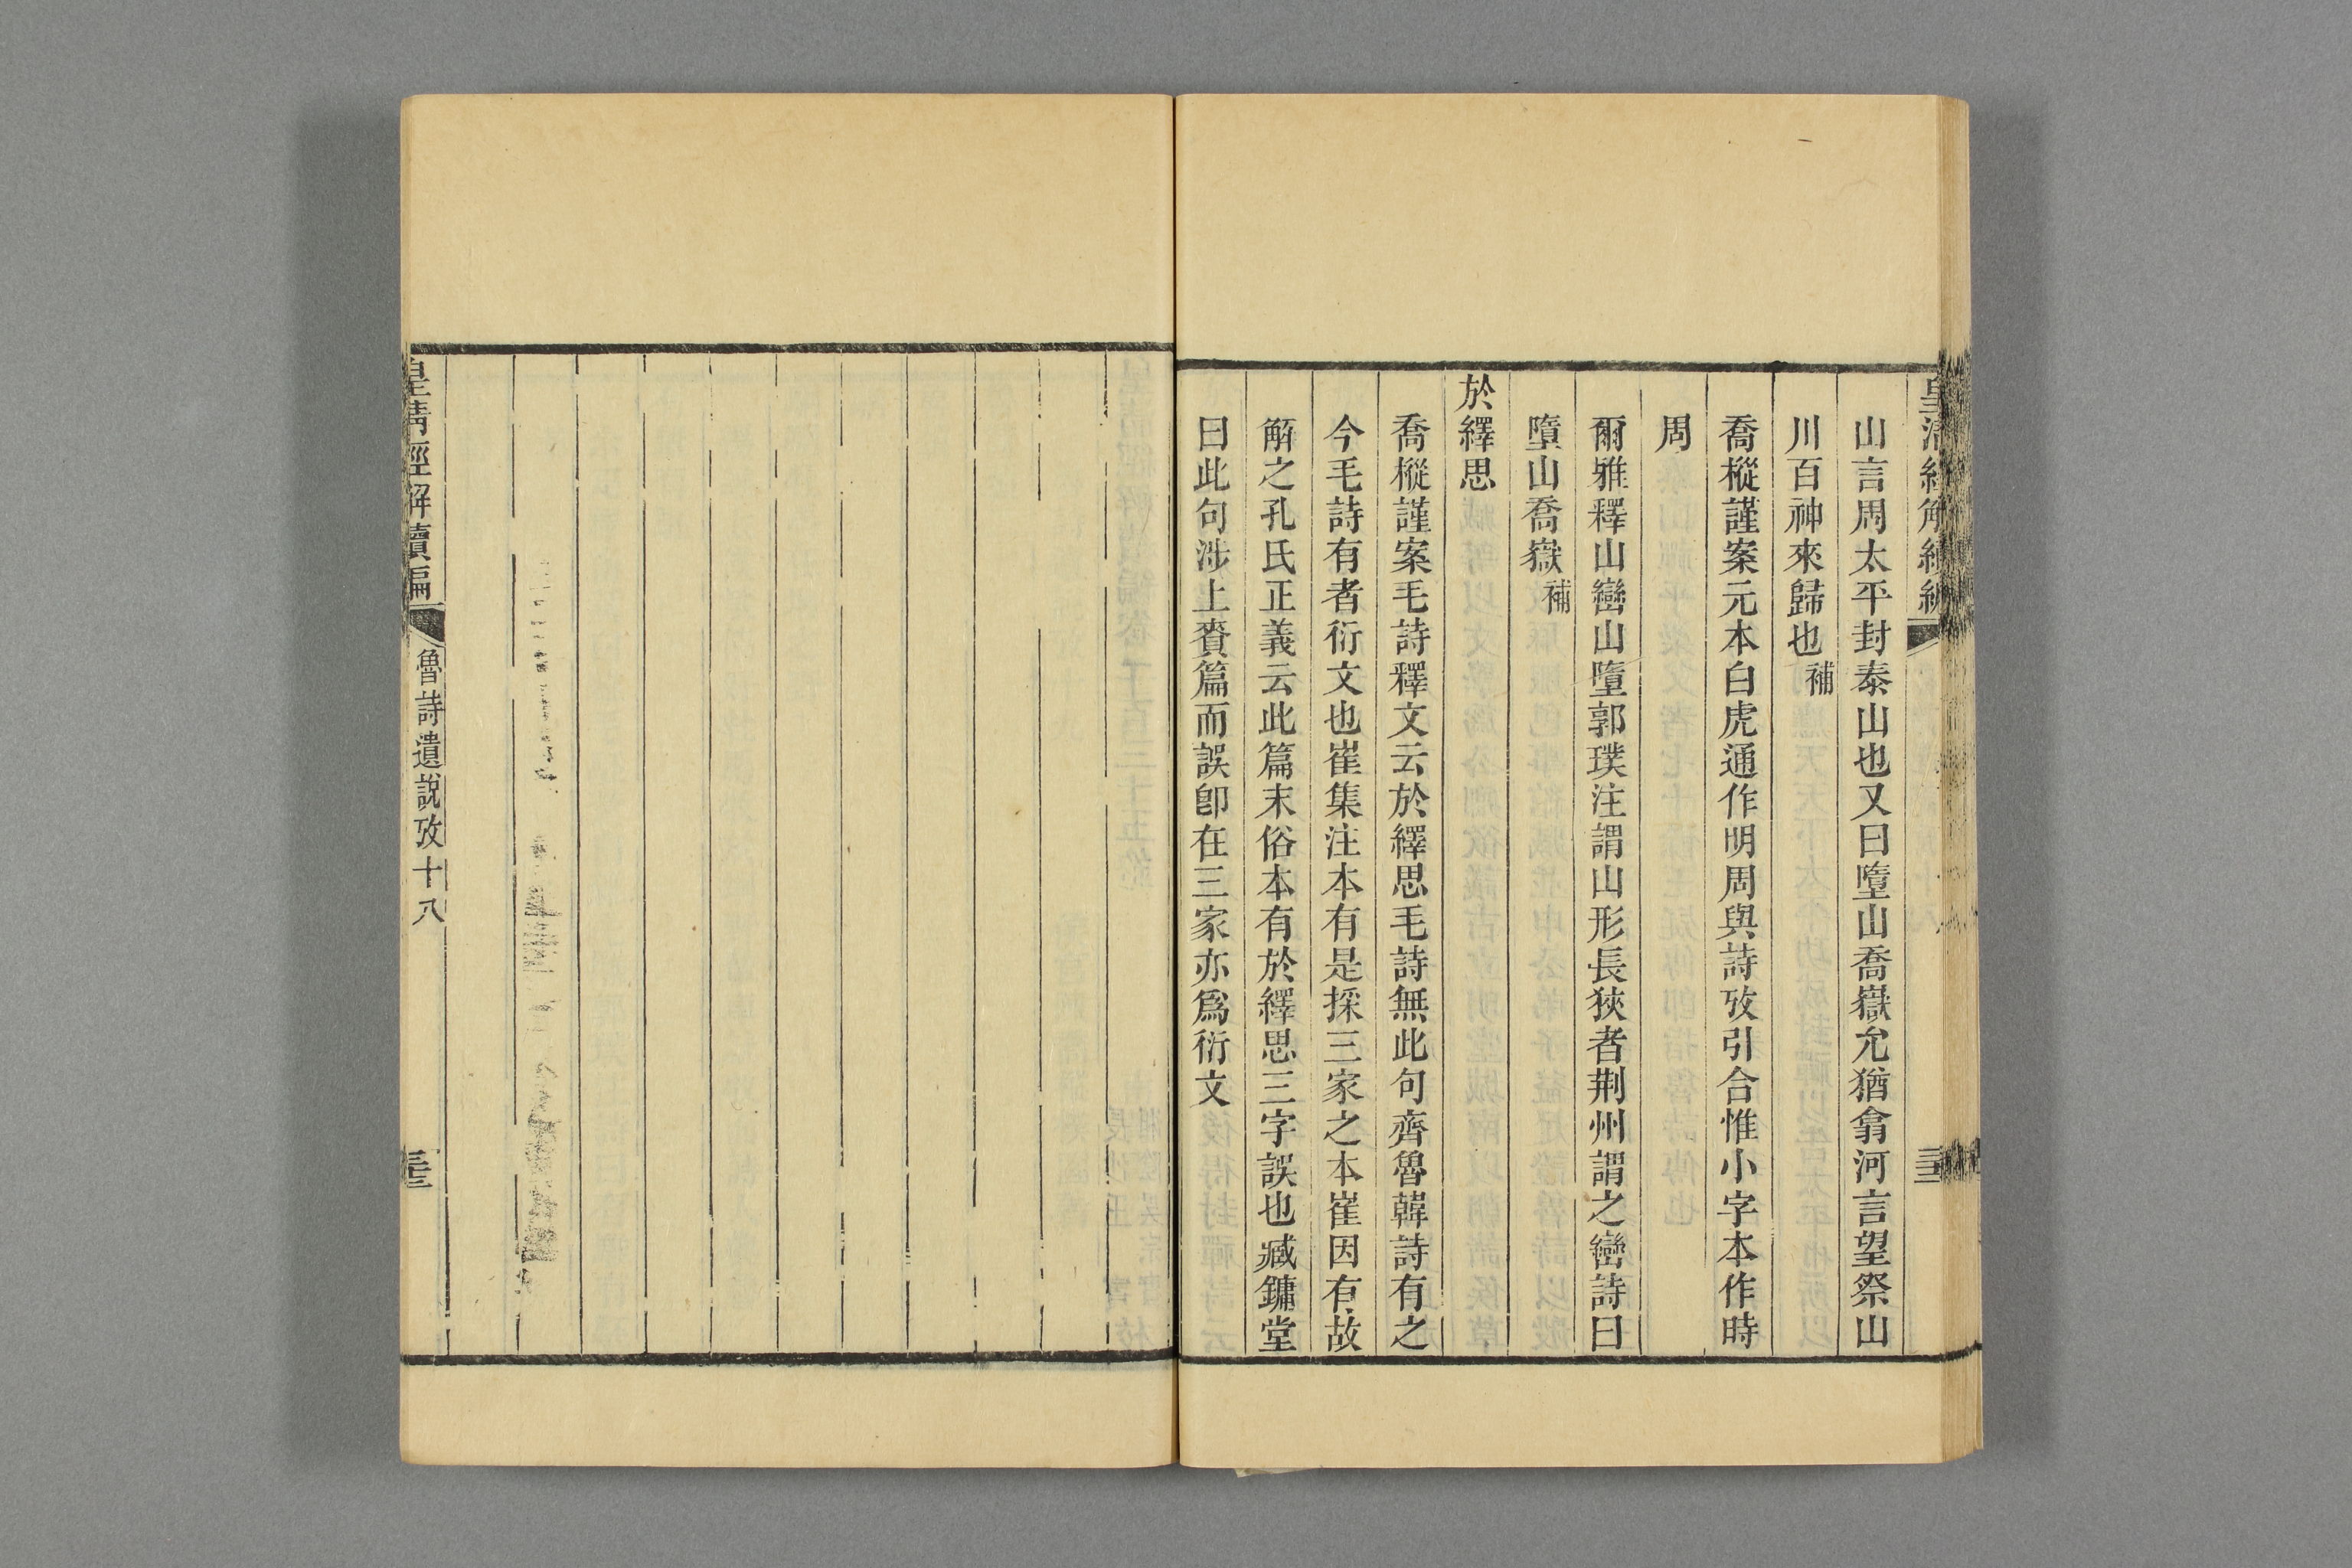 山言周太平封泰山也又曰墮山喬嶽允猶翕河言望祭山
川百神來歸也補
喬樅謹案元本白虎通作明周與詩攷引合惟小字本作時
周
爾雅釋山巒山墮郭璞注謂山形長狹者荆州謂之巒詩曰
墮山喬嶽補
於繹思
喬樅謹案毛詩釋文云於繹思毛詩無此句齊魯韓詩有之
今毛詩有者衍文也崔集注本有是採三家之本崔因有故
解之孔氏正義云此篇末俗本有於繹思三字誤也臧鏞堂
曰此句涉上賚篇而誤卽在三家亦爲衍文
皇清經解續編
魯詩遺說攷十八